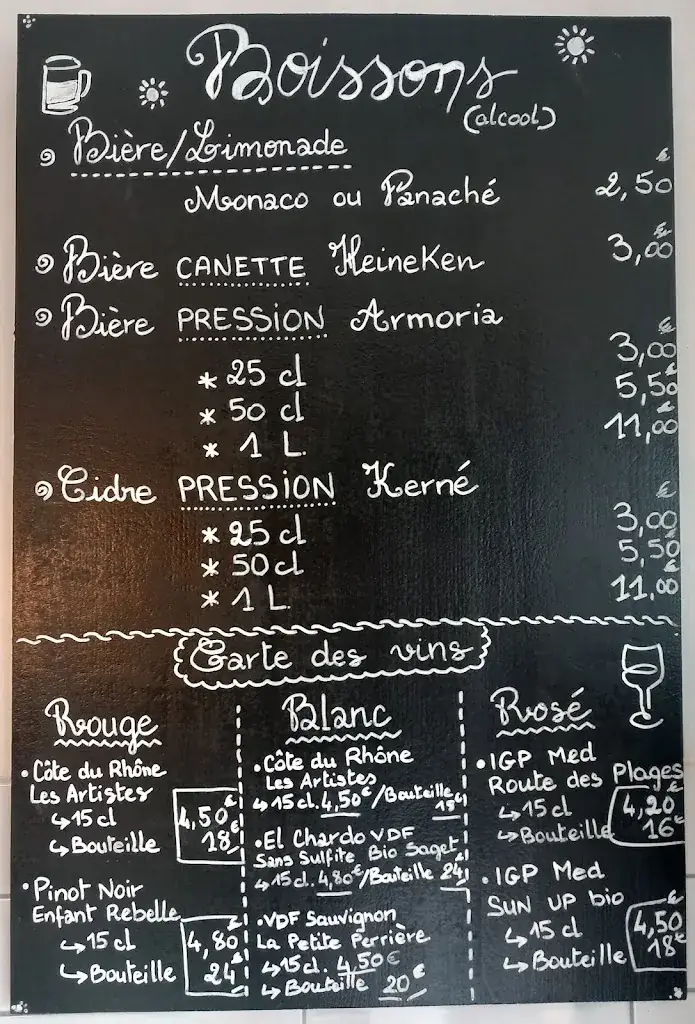 Boissons
(alcool)
Bière/Limonade
Monaco ou Panaché 2,50€
Bière CANETTE HeineKen 3,00€
Bière PRESSION Armoria
* 25 cl 3,00€
* 50 cl 5,50€
* 1 L. 11,00€
Cidre PRESSION Kerné
* 25 cl 3,00€
* 50 cl 5,50€
* 1 L. 11,00€
Carte des vins
Rouge
• Côte du Rhône
Les Artistes
↳ 15 cl 4,50€
↳ Bouteille 18€
• Pinot Noir
Enfant Rebelle
↳ 15 cl 4,80€
↳ Bouteille 24€
Blanc
• Côte du Rhône
Les Artistes
↳ 15 cl. 4,50€/Bouteille
• El Chardo VDF
Sans Sulfite Bio Saget
↳ 15 cl. 4,80€/Bouteille 24€
• VDF Sauvignon
La Petite Perrière
↳ 15 cl. 4,50€
↳ Bouteille 20€
Rosé
• IGP Med
Route des Plages
↳ 15 cl 4,20€
↳ Bouteille 16€
• IGP Med
SUN UP bio
↳ 15 cl 4,50€
↳ Bouteille 18€